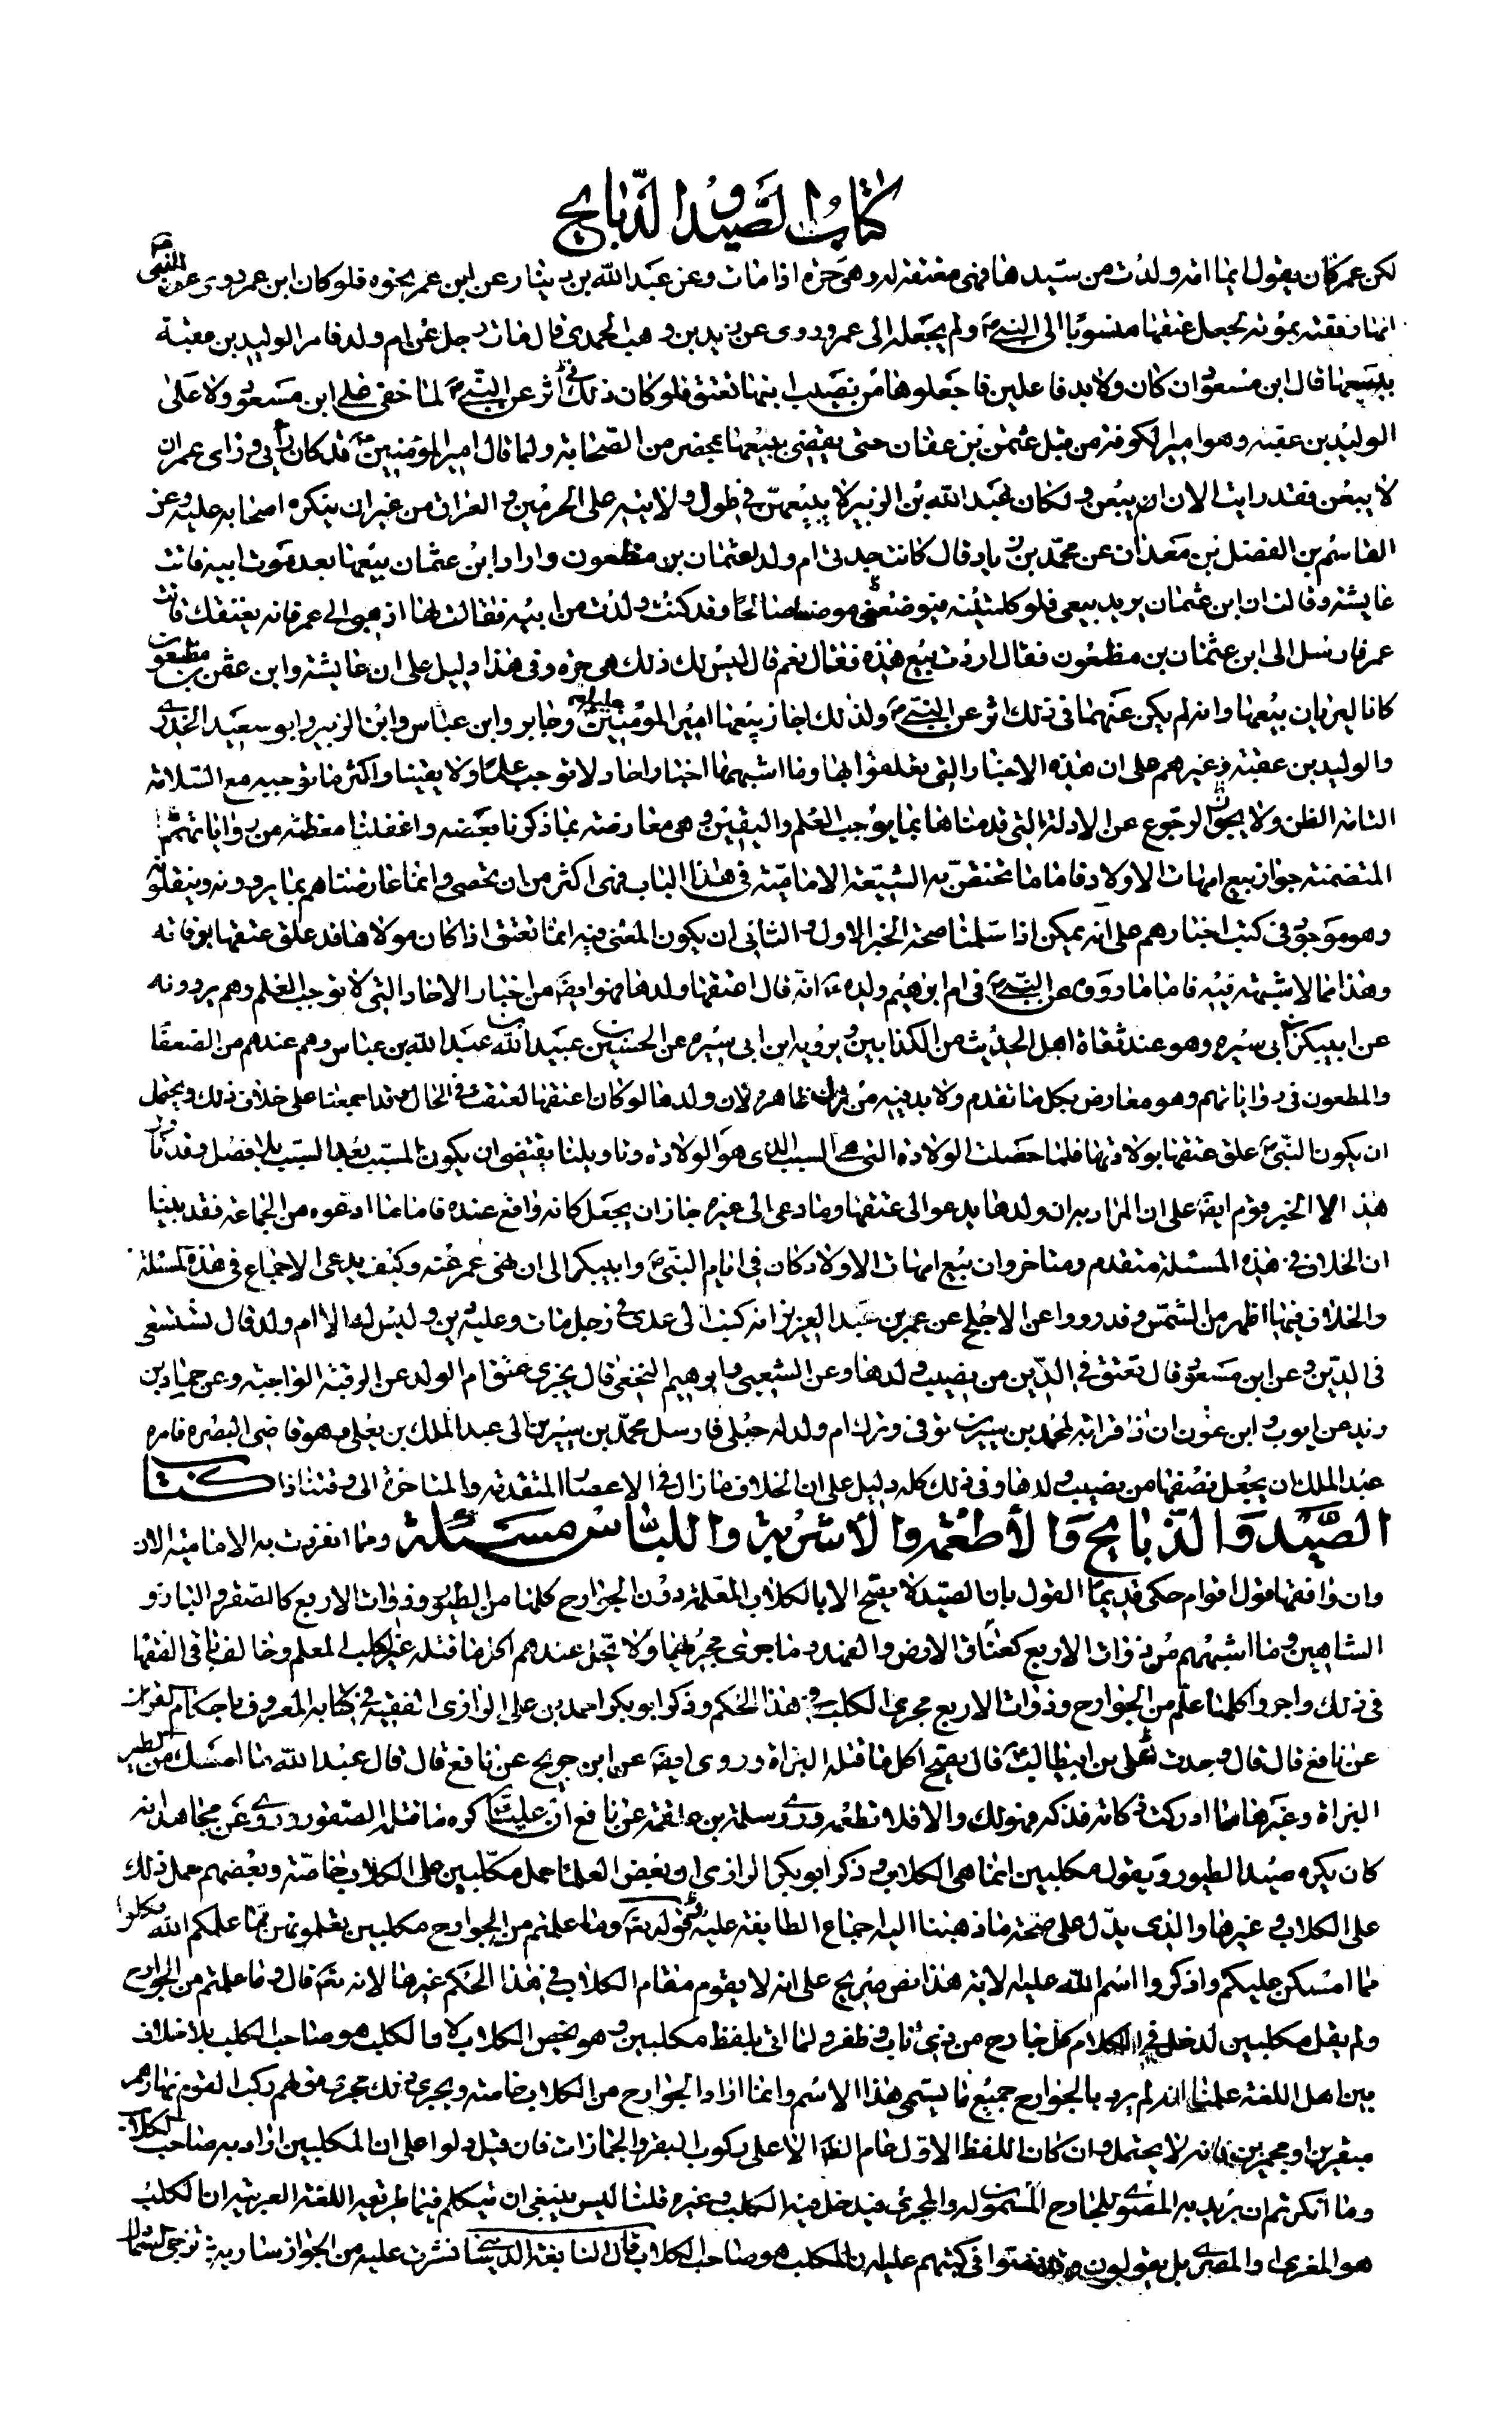 كتاب الصيد و الذبايح
لكن عمر كان يقول ايما امة ولدت من سيدها فهى معتقة له وهى حرة اذا مات وعن عبد الله بن دينار عن ابن عمر بنحوه فلو كان ابن عمر روى عن النبى ص
انها تعتق بموته لجعل عتقها منسوبا الى النبى ص ولم يجعله الى عمر وروى عن زيد بن وهب الجهنى قال مات رجل عن ام ولد فامر الوليد بن عقبة
ببيعها قال ابن مسعود ان كان ولا بد فاعلين فاجعلوها من نصيب ابنها تعتق فلو كان ذلك فى أثر عن النبى ص لما خفى على ابن مسعود ولا على
الوليد بن عقبة وهو امير الكوفة من قبل عثمن بن عفان حتى يقضى ببيعها بمحضر من الصحابة ولما قال امير المؤمنين ع قد كان رأيى وراى عمر ان
لا يبعن فقد رايت الان ان يبعن و لكان عبد الله بن الزبير لا يبيعهن فى طول ولايته على الحرمين و العراق من غير ان ينكره اصحابه عليه وعن
القاسم بن الفضل بن معدان عن محمد بن زياد قال كانت جدتى ام ولد لعثمان بن مظعون واراد ابن عثمان بيعها بعد موت ابيه فاتت
عايشة وقالت ان ابن عثمان يريد بيعى فلو كلمتيه فيضعنى موضعا صالحا وقد كنت ولدت من ابيه فقالت لها اذهبى الى عمر فانه يعتقك فاتت
عمر فارسل الى ابن عثمان بن مظعون فقال اردت بيع هذه فقال نعم قال ليس لك ذلك هى حرة وفى هذا دليل على ان عايشة وابن عثمن بن مظعون
كانا يريان بيعها وانه لم يكن عندهما فى ذلك اثر عن النبى ص ولذلك اجاز بيعها امير المؤمنين ع وجابر وابن عباس وابن الزبير وابو سعيد الخدرى
والوليد بن عقبة و غيرهم على ان هذه الاخبار التى تعلقوا بها وما اشبهها اخبار احاد لا توجب علما ولا يقينا واكثر ما توجبه مع السلامة
التامة الظن ولا يجوز الرجوع عن الادلة التى قدمناها بما يوجب العلم واليقين و هى معارضة بما ذكرنا بعضه واغفلنا معظمه من رواياتهم
المتضمنة جواز بيع امهات الاولاد فاما ما تختص به الشيعة الامامية فى هذا الباب فهى اكثر من ان تحصى و انما عارضناهم بما يروونه وينقلونه
وهو موجود فى كتب اخبارهم على انه يمكن اذا سلمنا صحة الخبر الاول و الثانى ان يكون المعنى فيه انما تعتق اذا كان مولاها قد علق عتقها بوفاته
وهذا مما لا شبهة فيه فاما ما روى عن النبى ص فى ام ابرهيم ولده ع انه قال اعتقها ولدها فهو ايضا من اخبار الاحاد التى لا توجب العلم وهم يروونه
عن ابى بكر بن ابى سبره وهو عند ثقاة اهل الحديث من الكذابين و يرويه ابن ابى سبره عن الحسين بن عبيد الله بن عبد الله بن عباس وهم عندهم من الضعفا
والمطعون فى رواياتهم وهو معارض بكل ما تقدم ولا بد فيه من ترك ظاهره لان ولدها لو كان اعتقها لعتقت فى الحال و قد اجمعنا على خلاف ذلك ويحتمل
ان يكون النبى ص علق عتقها بولادتها فلما حصلت الولادة التى هى السبب الذى هو الولادة وتاويلنا يقتضى ان يكون المسبب بعد السبب بلا فصل وقد تأول
هذا الخبر قوم ايضا على ان المراد به ان ولدها يدعو الى عتقها وما دعى الى غيره جاز ان يجعل كانه واقع عنده فاما ما ادعوه من الجماعة فقد بينا
ان الخلاف فى هذه المسئلة متقدم ومتاخر وان بيع امهات الاولاد كان فى ايام النبى ص وابيبكر الى ان نهى عمر عنه وكيف يدعى الاجماع فى هذه المسئلة
والخلاف فيها اظهر من الشمس و قد رووا عن الاجلح عن عمر بن عبد العزيز انه كتب الى عدى فى رجل مات وعليه دين و ليس له الا ام ولد قال تستسعى
فى الدين وعن ابن مسعود قال تعتق فى الدين من نصيب ولدها وعن الشعبى و ابرهيم النخعى قال يجزى عتق ام الولد عن الرقبة الواجبة وعن حماد بن
زيد عن ايوب و ابن عون ان ذا قرابة لمحمد بن سيرين توفى وترك ام ولد له حبلى فارسل محمد بن سيرين الى عبد الملك بن يعلى و هو قاضى البصره فامره
عبد الملك ان يجعل نصفها من نصيب ولدها وفى ذلك كله دليل على ان الخلاف ما زال فى الاعصار المتقدمة والمتاخرة الى وقتنا هذا كتاب
الصيد و الذبايح و الأطعمة و الأشربة و اللباس مسئلة ومما انفردت به الامامية الان
وان وافقها قول اقوام حكى قديما القول بان الصيد لا يصح الا بالكلاب المعلمة دون الجوارح كلها من الطيور وذوات الاربع كالصقر و البازو
الشاهين و ما اشبههم من ذوات الاربع كعناق الارض والفهد و ما جرى مجراهما ولا يحل عندهم اكل ما قتله غير الكلب المعلم وخالف باقى الفقها
فى ذلك واجروا كلما علم من الجوارح وذوات الاربع مجرى الكلب فى هذا الحكم وذكر ابو بكر احمد بن على الرازى الفقيه فى كتابه المعروف باحكام القران
عن نافع قال قال وجدت لعلى بن ابيطالب ع قال يصح اكل ما قتله البزاة و روى ايضا عن ابن جريح عن نافع قال قال عبد الله ما امسك من الطير
البزاة وغيرها فما ادركت ذكاته فذكه فهو لك والا فلا تطعمه وروى سلمة بن علقمة عن نافع ان عليا ع كره ما قتلته الصقور وروى عن مجاهد انه
كان يكره صيد الطيور و يقول مكلبين انما هى الكلاب و ذكر ابو بكر الرازى ان بعض العلما حمل مكلبين على الكلاب خاصة وبعضهم حمل ذلك
على الكلاب و غيرها والذى يدل على صحة ما ذهبنا اليه اجماع الطايفة عليه و قوله تعالى وما علمتم من الجوارح مكلبين تعلمونهن مما علمكم الله فكلوا
مما امسكن عليكم واذكروا اسم الله عليه لانه هذا نص صريح على انه لا يقوم مقام الكلاب فى هذا الحكم غيرها لانه تعالى قال و ما علمتم من الجوارح
ولم يقل مكلبين لدخل فى الكلام كل جارح من ذى ناب و ظفر و لما اتى بلفظ مكلبين و هو يخص الكلاب لان المكلب هو صاحب الكلب بلا خلاف
بين اهل اللغة علمنا انه لم يرد بالجوارح جميع ما يستحق هذا الاسم وانما اراد الجوارح من الكلاب خاصة ويجرى ذلك مجرى قولهم ركب القوم نهارهم
مبقرين او مجمزين فانه لا يحتمل و ان كان اللفظ الاول عام الظاهر الا على ركوب البقر و الجمازات فان قيل دلوا على ان المكلبين اراد به صاحب الكلاب
وما انكرتم ان يريد به المضرى للجارح الممرن له و المجرى فيدخل فيه الكلب و غيره قلنا ليس ينبغى ان يتكلم فيما طريقه اللغة العربية ان الكلب
هو المغرى و المضرى بل يقولون و قد نصوا فى كتبهم عليه بان المكلب هو صاحب الكلاب قال النابغة الذبيانى سرت عليه من الجوزاء سارية تزجى الشمال